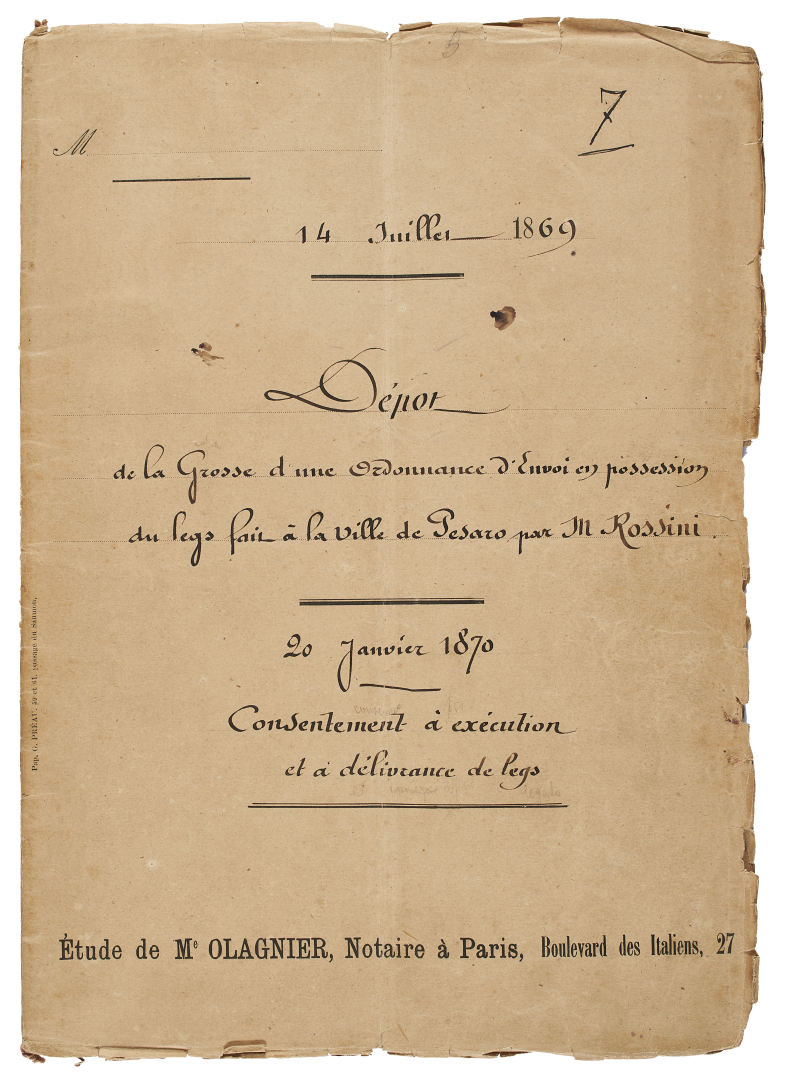 5
7
M
14 Juillet 1869
Dépot
de la Grosse d'une Ordonnance d'Envoi en possession
du legs fait à la Ville de Pesaro par M Rossini.
20 Janvier 1870
Consentement à exécution
et à délivrance de legs
Étude de Me OLAGNIER, Notaire à Paris, Boulevard des Italiens, 27
Pap. G. PRÉAU, 59 et 61, passage du Saumon,